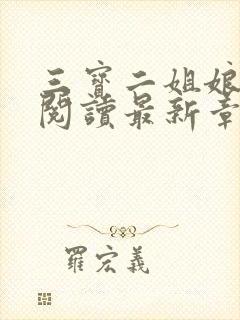 三寶二姐娘
閱讀最新章
羅宏義